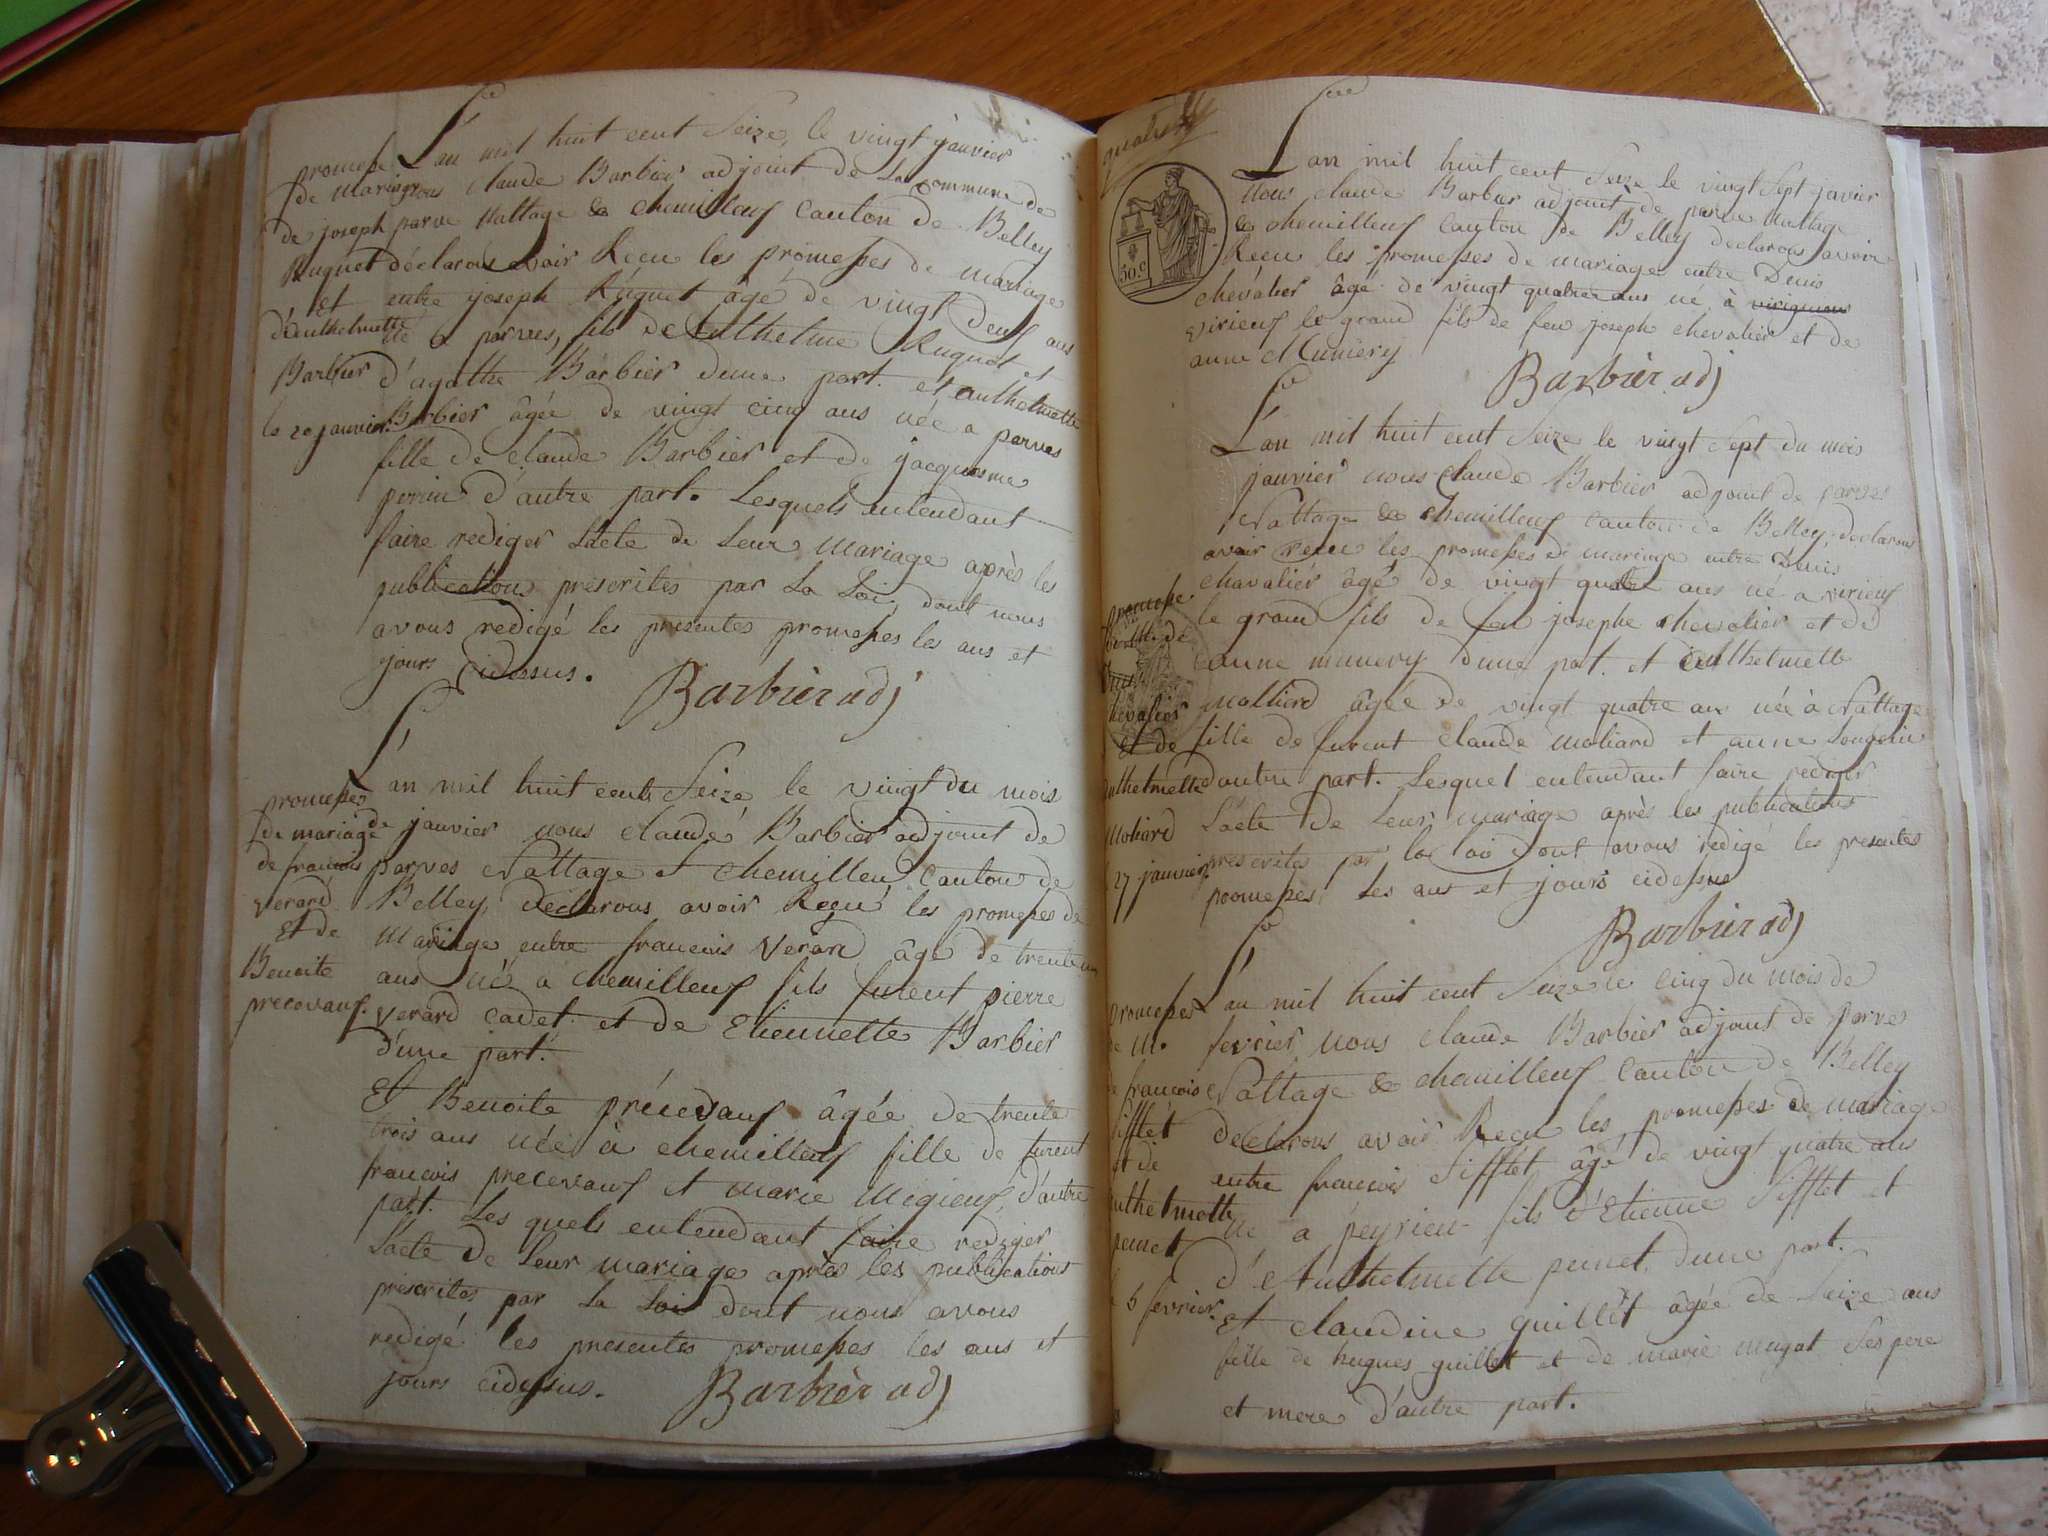 L'an mil huit cent Seize, le vingt janvier
nous Claude Barbier adjoint de La Commune de
parve Nattage & chemilleuf Canton de Belley
déclarons avoir Reçu les promesses de mariage
entre joseph Ruguet âgé de vingt deuf ans
né a parves, fils de Anthelme Ruguet et
d'agathe Barbier dune part. et anthelmette
Barbier âgée de vingt cinq ans née a parves
fille de Claude Barbier et de jacquesme
perrin d'autre part. Lesquels entendant
faire rediger L'acte de Leur mariage après les
publications prescrites par La Loi, dont nous
avons redigé les presentes promesses les ans et
jours cidesus.
Barbier adj
promesse
de mariage
de joseph
Ruguet
et
d'anthelmette
Barbier
le 20 janvier
L'an mil huit cent Seize le vingt du mois
de janvier nous claude Barbier adjoint de
parves Nattage et chemilleu Canton de
Belley, Declarons avoir Reçu les promesses de
Mariage entre francois Verard âgé de trente un
ans né a chemilleuf fils furent pierre
verard cadet et de Etiennette Barbier
d'une part.
Et Benoite précevauf âgée de trente
trois ans née à chemilleuf fille de furent
francois precevauf et marie Migieuf, d'autre
part. Les quels entendant faire rediger
L'acte de Leur mariage après les publications
prescrites par La Loi dont nous avons
redigé les presentes promesses les ans et
jours cidessus.
Barbier adj
promesses
de mariage
de francois
verard
Et de
Benoite
precevauf.
30.c
L'an mil huit cent Seize le vingt Sept janvier
Nous claude Barbier adjoint de parve Nattage
& chemilleuf Canton de Belley declarons avoir
Reçu les promesses de mariage entre Denis
chevalier âgé de vingt quatre ans né à
virieuf le grand fils de feu joseph chevalier et de
anne Muniery
Barbier adj
L'an mil huit cent Seize le vingt Sept du mois
janvier nous Claude Barbier adjoint de parves
Nattage & chemilleuf Canton de Belley, declarons
avoir recu les promesses de mariage entre Denis
chavalier âgé de vingt quatre ans né a virieuf
le grand fils de feu josephe chevalier et de
anne munery d'une part. et Anthelmette
Molliard âgée de vingt quatre ans née à Nattage
fille de furent Claude Moliard et anne
d'autre part. Lesquel entendant faire rediger
L'acte de Leur mariage après les publications
prescrites par la Loi dont avons redigé les presentes
promesses, Les ans et jours cidessus
Barbier adj
promesse
chevalier
et de
anthelmette
Moliard
27 janvier
L'an mil huit cent Seize le cinq du mois de
fevrier nous claude Barbier adjoint de parves
Nattage & chemilleuf Canton de Belley
declarons avoir Reçu les promesses de mariage
entre francois Sifflet âgé de vingt quatre ans
né a peyrieu fils d'Etienne Sifflet et
d'Anthelmette pernet, d'une part.
et claudine guillet âgée de Seize ans
fille de hugues guillet et de marie mugat Ses pere
et mere d'autre part.
promesses
de M.
de francois
Sifflet
et de
anthelmette
pernet
5 fevrier.